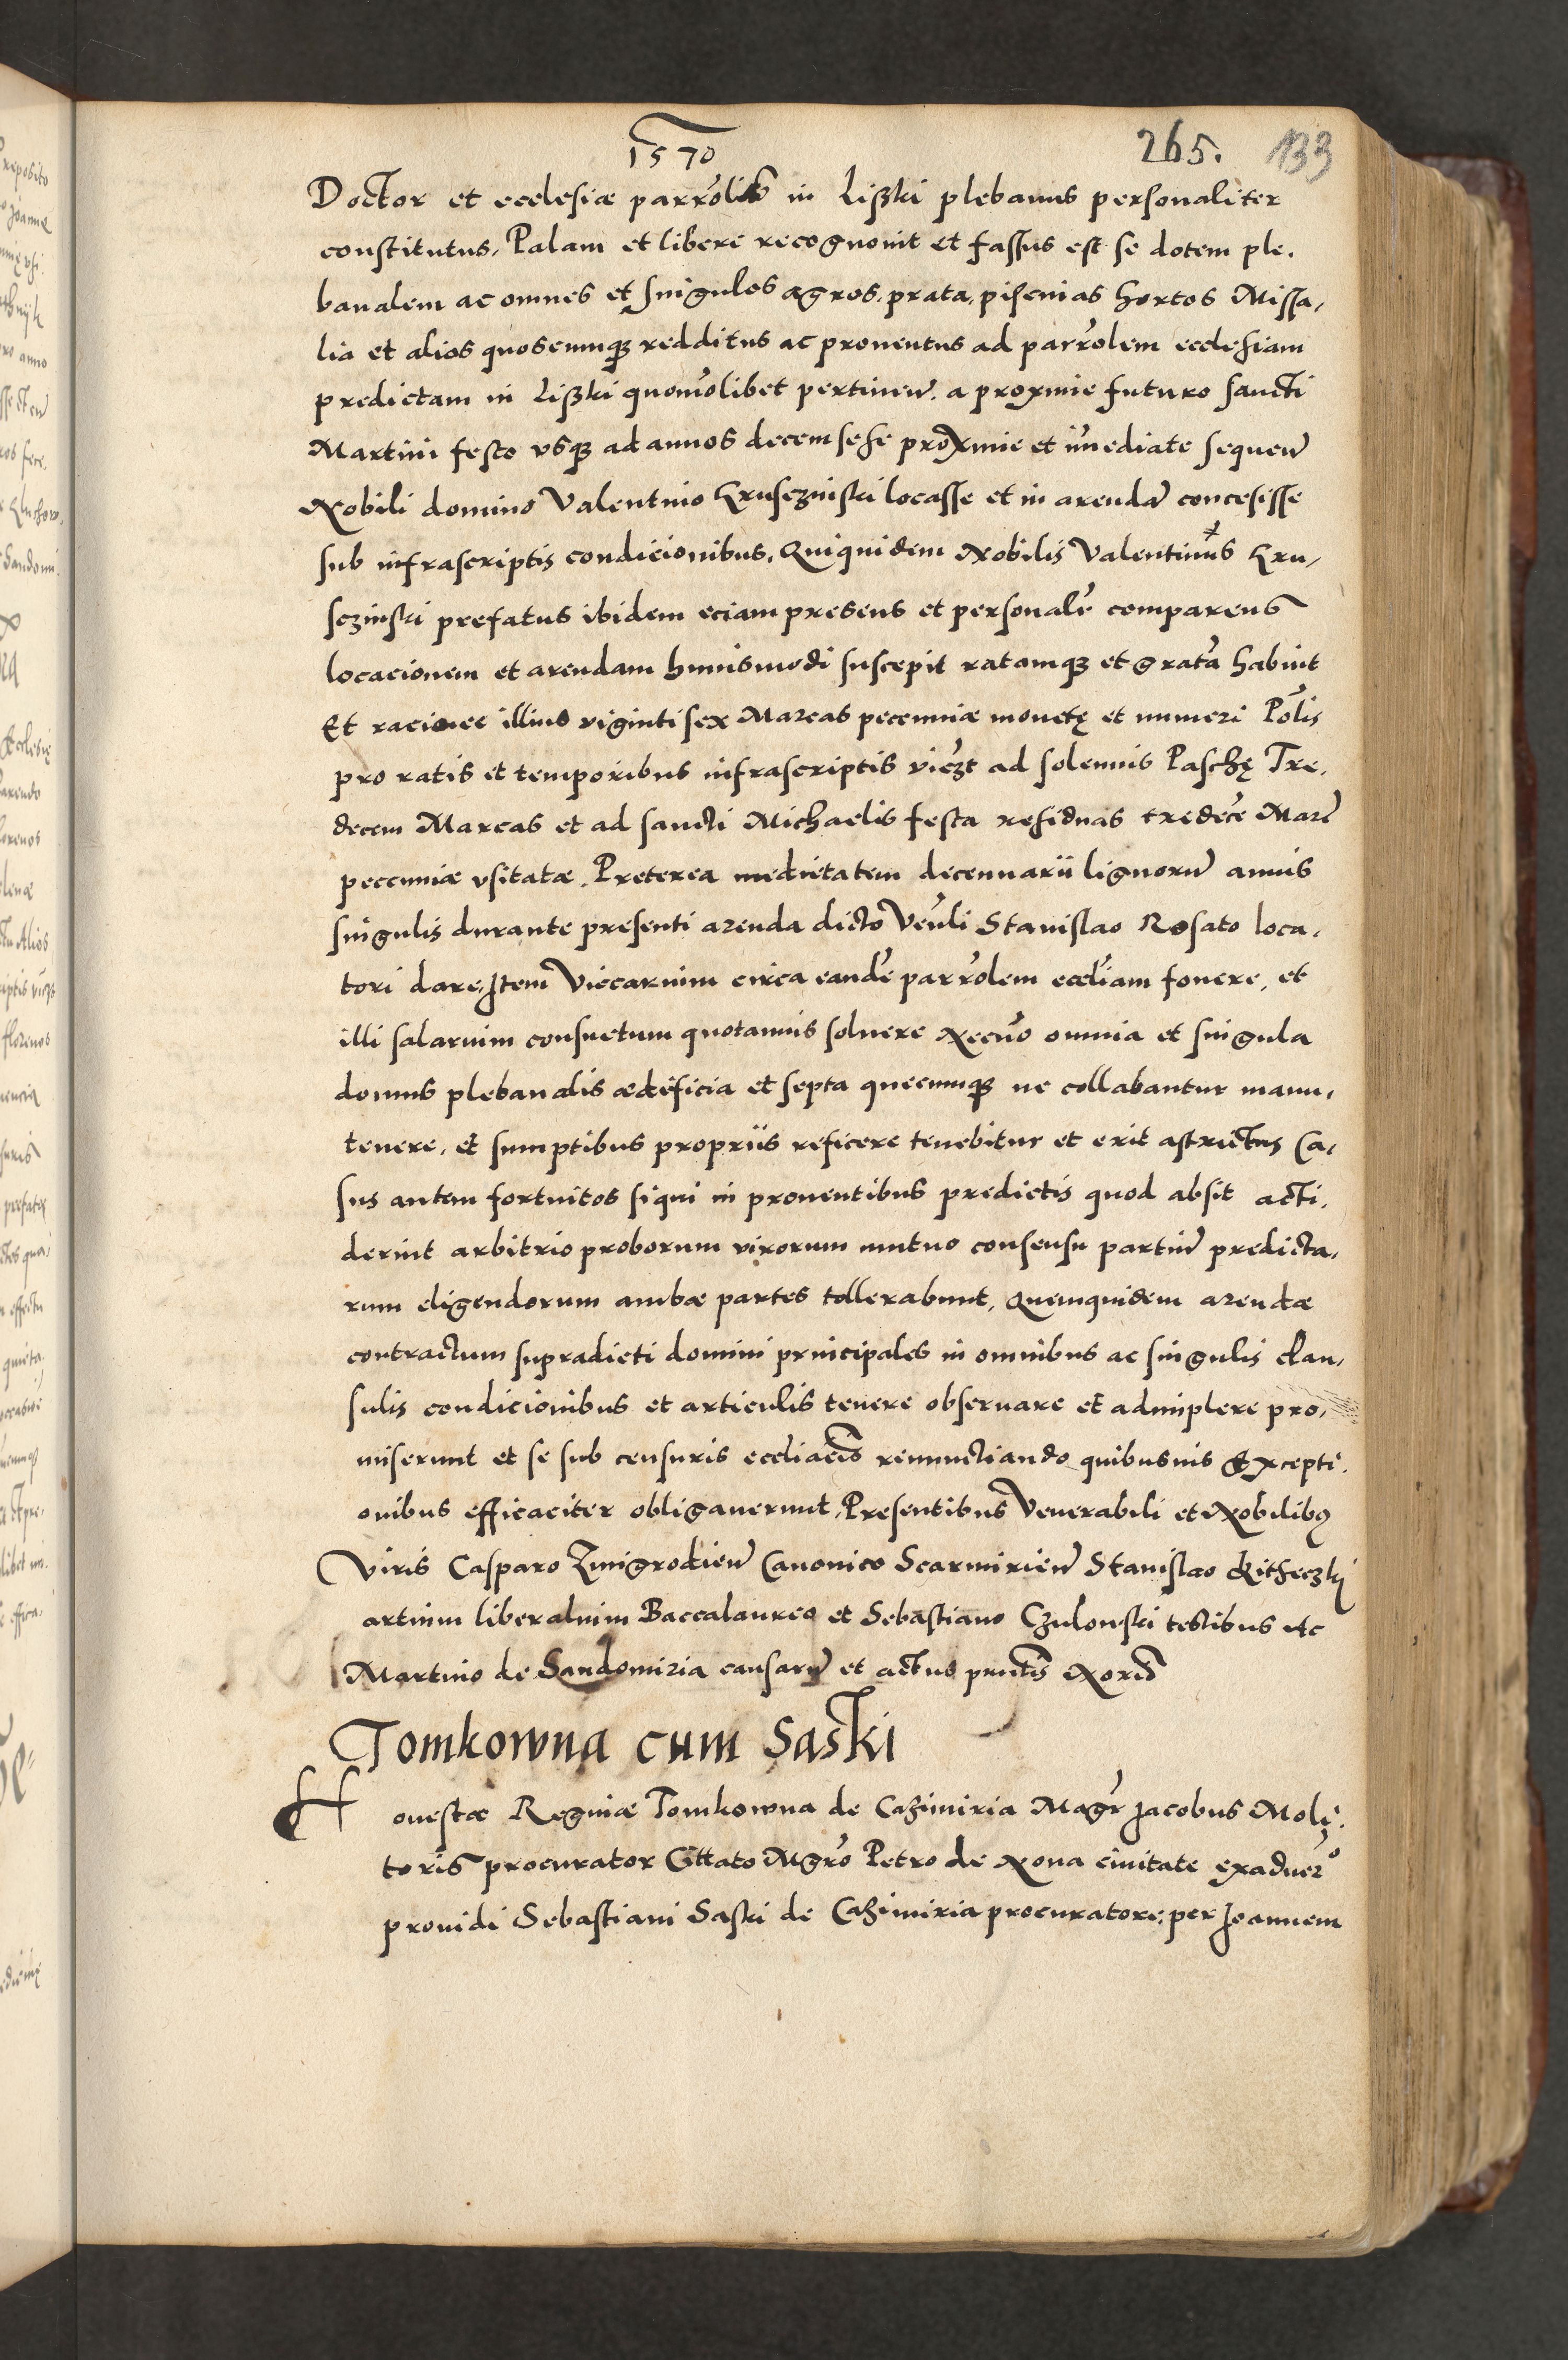 1570 265. 133
Doctor et ecclesiæ parrolis in Liszki plebanus personaliter
constitutus, Palam et libere recognouit et fassus est se dotem ple,
banalem ac omnes et singulos agros, prata, piscinas hortos Missa,
lia et alios quoscumq redditus ac prouentus ad parrolem ecclesiam
predictam in Liszki quomolibet pertinen. a proxime futuro sancti
Martini festo vsq ad annos decem sese proxime et imediate sequen
Nobili domino Valentino Krusezniski locasse et in arendam concesisse
sub infrascriptis condicionibus, Quiquidem Nobilis Valentinus Kru,
szinski prefatus ibidem eciam presens et personalr comparens
locacionem et arendam huiusmodi suscepit ratamq et gratã habuit
Et racione illius viginti sex Marcas pecuniæ monetę et numeri Polis
pro ratis et temporibus infrascriptis viczt ad solennis Paschę Tre,
decem Marcas et ad sancti Michaelis festa residuas tredecẽ Marc
peccuniæ vsitatæ. Preterea medietatem decennarii lignorum annis
singulis durante presenti arenda dicto Venli Stanislao Rosato loca,
tori dare, Item Viccarium circa eandẽ parrolem eccliam fouere, et
illi salarium consuetum quotannis soluere Necno omnia et singula
domus plebanalis ædeficia et septa quecumq ne collabantur manu,
tenere, et sumptibus propriis reficere tenebitur et erit astrictus Ca,
sus autem fortuitos siqui in prouentibus predictis quod absit acti,
derint arbitrio proborum virorum mutuo consensu partium predicta,
rum eligendorum ambæ partes tollerabunt, Quemquidem arendæ
contractum supradicti domini principales in omnibus ac singulis clau,
sulis condicionibus et articulis tenere obseruare et adimplere pro,
miserunt et se sub censuris eccliacis renunctiando quibusuis Excepti,
onibus efficaciter obligauerunt, Presentibus Venerabili et Nobilibus
Viris Casparo Zmigrodien Canonico Scarmirien Stanislao
artium liberalium Baccalaureo et Sebastiano Czulowski testibus etc
Martino de Sandomiria causarum et actus pntis Noris
Tomkowna cum Saski
Honestæ Reginæ Tomkowna de Cazimiria Magr Jacobus Moli,
toris procurator Cttato Mgro Petro de Noua ciuitate exaduerso
prouidi Sebastiani Saski de Cazimiria procuratore, per Joannem